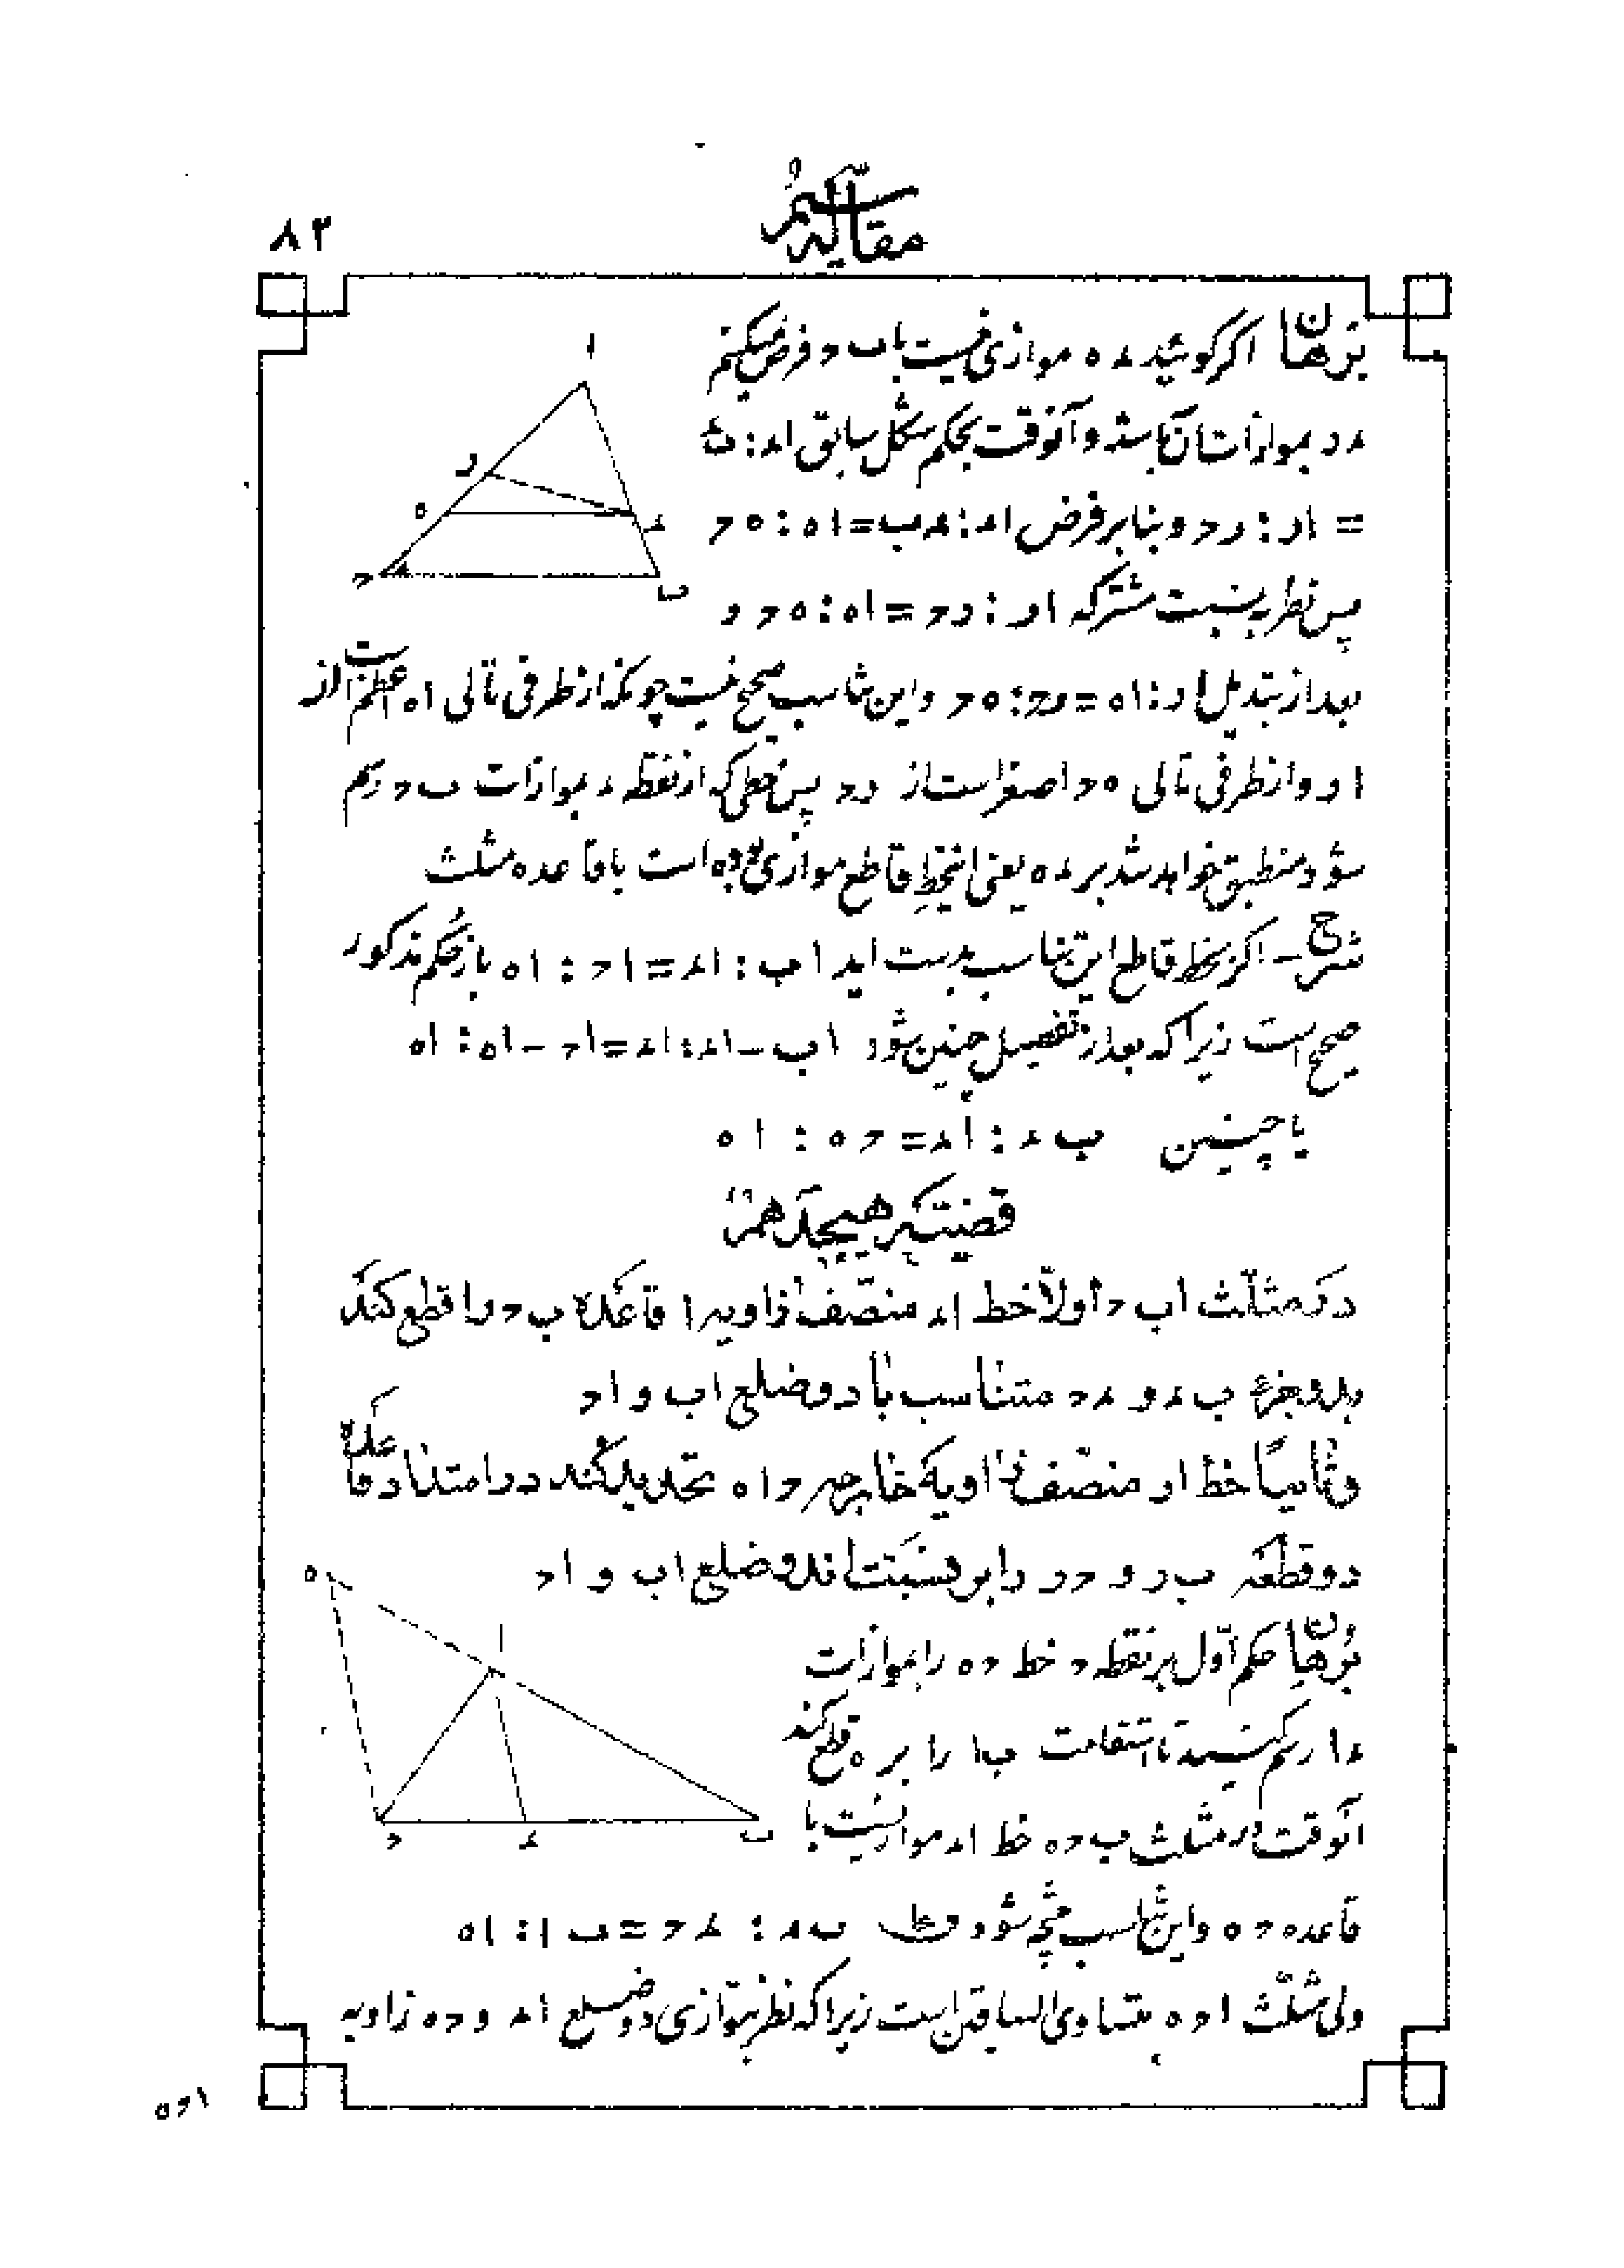 مقاله سیم
۸۳
برهان اگر گوئید ء ه موازی نیست با ب ح فرض میکنم
ء ر بموازات آن باشد و آنوقت بحکم شکل سابق اء : ء ب
= ار : رح و بنابر فرض اء : ء ب = اه : ه ح
پس نظر به نسبت مشترکه ار : رح = اه : ه ح و
بعد از تبدیل ار : اه = رح : ه ح و این تناسب صحیح نیست چونکه از طرفی تالی اه اعظم است از
ار و از طرفی تالی ه ح اصغر است از رح پس خطی که از نقطه ء بموازات ب ح رسم
شود منطبق خواهد شد بر ء ه یعنی اینخط قاطع موازی بوده است با قاعده مثلث
شرح - اگر بخط قاطع این تناسب بدست اید اب : اء = اح : اه باز حکم مذکور
صحیح است زیرا که بعد از تفصیل چنین شود اب - اء : اء = اح - اه : اه
یا چنین ب ء : اء = ح ه : اه
قضیّه هیجدهم
در مثلّث اب ح اولاً خط اء منصّف زاویه ا قاعده ب ح را قطع کند
بدو جزء ب ء و ء ح متناسب با دو ضلع اب و اح
و ثانیاً خط ار منصّف زاویه خارجه ح اه تحدید کند در امتداد قاعده
دو قطعه ب ر و ح ر را بر نسبت اندو ضلع اب و اح
برهان حکم اوّل بر نقطه ح خط ح ه را بموازات
ء ا رسم کنید تا استقامت ب ا را بر ه قطع کند
آنوقت در مثلث ب ح ه خط اء موازیست با
قاعده ح ه و این تناسب نتیجه شود ب ء : ء ح = ب ا : اه
ولی مثلّث اح ه متساوی الساقین است زیرا که نظر بتوازی دو ضلع اء و ح ه زاویه
اح ه
ا
ر
ه
ء
ح
ب
ه
ا
ح
ء
ب